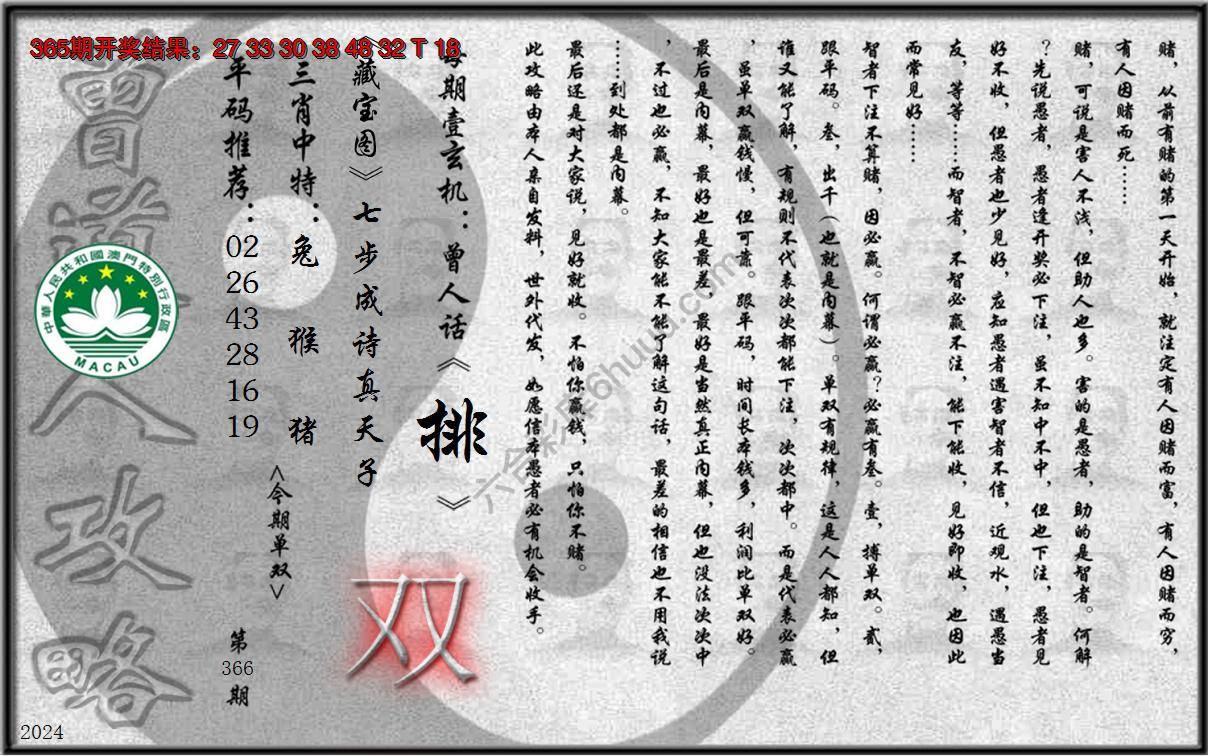 365期开奖结果：27 33 30 38 48 32 T 18
赌，从前有赌的第一天开始，就注定有人因赌而富，有人因赌而穷，
有人因赌而死……
赌，可说是害人不浅，但助人也多。害的是愚者，助的是智者。何解
？先说愚者，愚者逢开奖必下注，虽不知中不中，但也下注，愚者见
好不收，但愚者也少见好，应知愚者遇害智者不信，近观水，遇愚当
友，等等……而智者，不智必赢不注，能下能收，见好即收，也因此
而常见好……
智者下注不算赌，因必赢。何谓必赢？必赢有叁。壹，搏单双。贰，
跟平码。叁，出千（也就是内幕）。单双有规律，这是人人都知，但
谁又能了解，有规则不代表次次都能下注，次次都中。而是代表必赢
，虽单双赢钱慢，但可靠。跟平码，时间长本钱多，利润比单双好。
最后是内幕，最好也是最差，最好是当然真正内幕，但也没法次次中
，不过也必赢，不知大家能不能了解这句话，最差的相信也不用我说
……到处都是内幕。
最后还是对大家说，见好就收。不怕你赢钱，只怕你不赌。
此攻略由本人亲自发料，世外代发，如愿信本愚者必有机会收手。
每期壹玄机：曾人话《排》
《藏宝图》七步成诗真天子
双
三肖中特：兔 猴 猪
<今期单双>
平码推荐：02 26 43 28 16 19
第366期
曾道人攻略
中華人民共和國澳門特別行政區
MACAU
六合彩库6huuu.com
2024